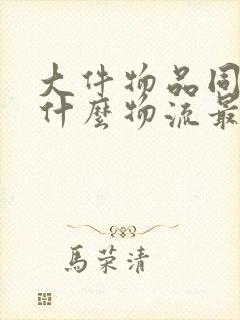 大件物品同
什麼物流最
馬荣清